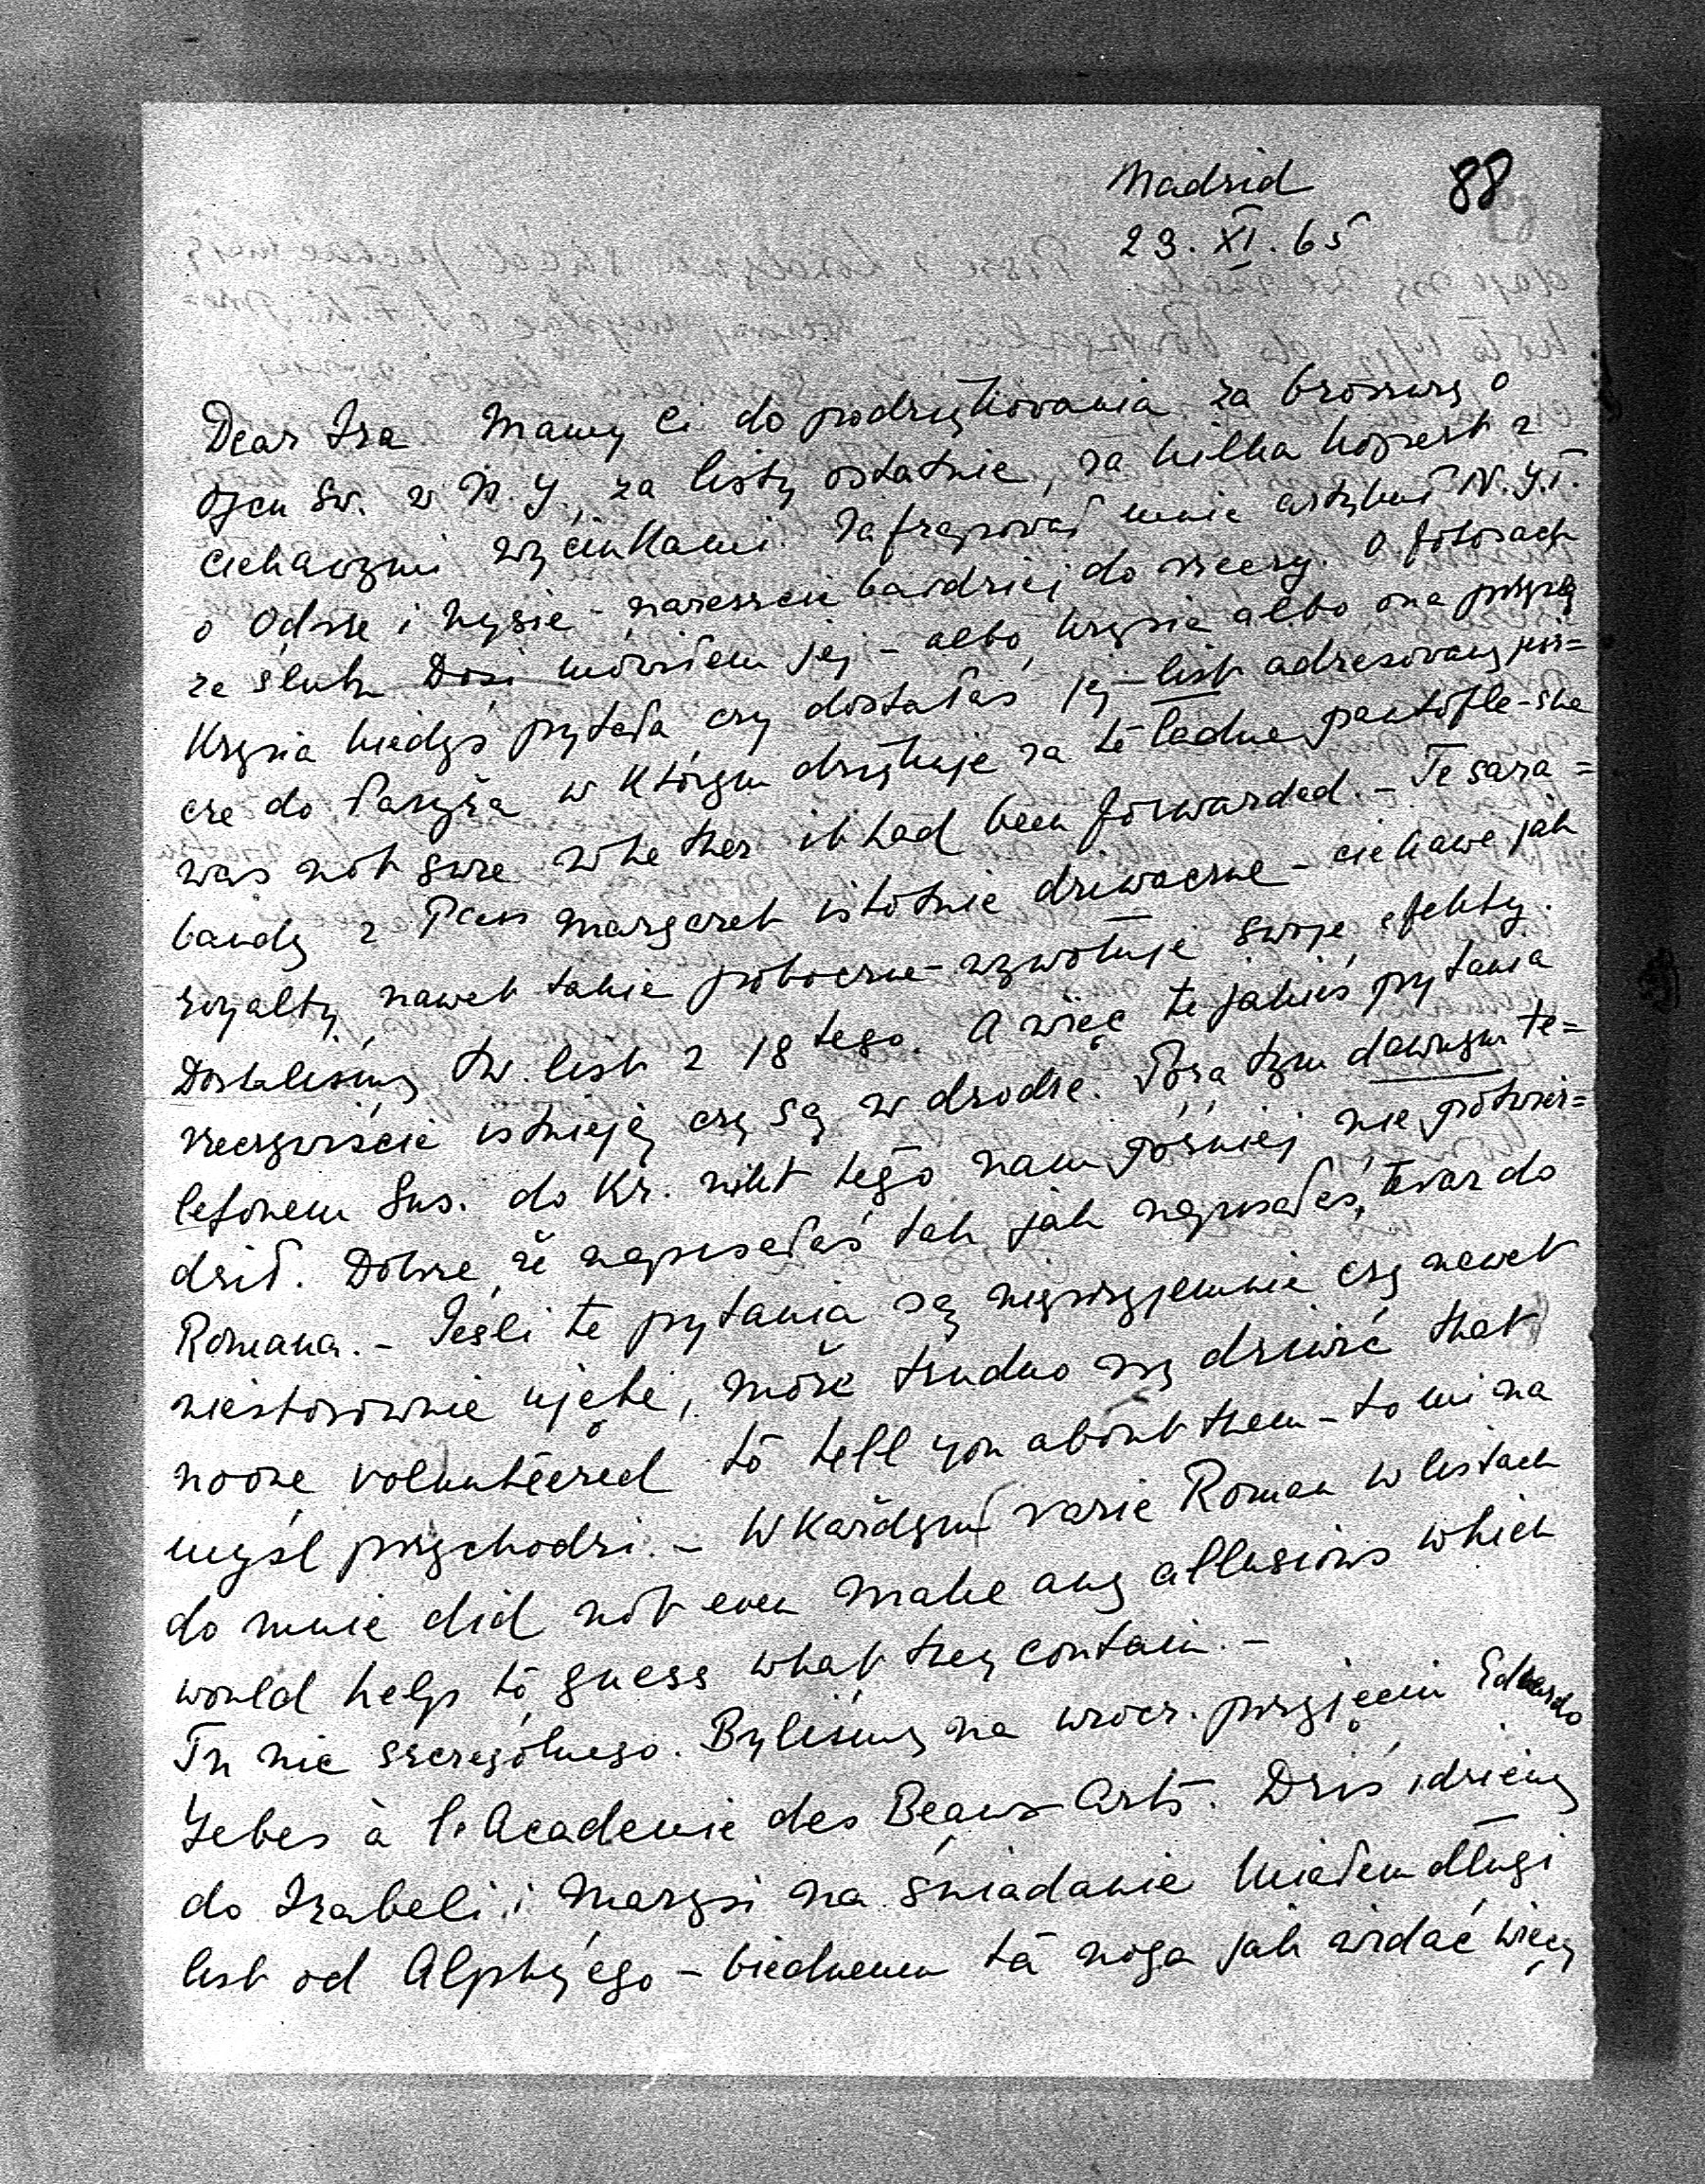 Madrid 88
23. XI. 65
Dear Iza Mamy Ci do podziękowania za broszurę o
Ojcu Św. w N.Y, za listy ostatnie, za kilka kopert z
ciekawymi wycinkami. Zafrapował mnie artykuł N.Y.T.
o Odrze i Nysie - nareszcie bardziej do rzeczy. O fotosach
ze ślubu Dosi mówiłem jej - albo Krysia albo ona
Krysia kiedyś pytała czy dostałaś jej list adresowany jesz=
cze do Paryża w którym dziękuje za te ładne pantofle - she
was not sure whether it had been forwarded. - Te sara=
bandy z Pcess Margaret istotnie dziwaczne - ciekawe jak
royalty, nawet takie poboczne - wywołuje swoje efekty.
Dostaliśmy tw. list z 18tego. A więc te jakieś pytania
rzeczywiście istnieją czy są w drodze. Poza tym dawnym te=
lefonem Sus. do Kr. nikt tego nam później nie potwier=
dził. Dobrze, że napisałaś tak jak napisałaś, teraz do
Romana. - Jeśli te pytania są nieprzyjemnie czy nawet
niestosownie ujęte, może trudno się dziwić that
noone volunteered to tell you about them - to mi na
myśl przychodzi. - W każdym razie Roman w listach
do mnie did not even make any allusions which
would help to guess what they contain. -
Tu nic szczególnego. Byliśmy na urocz. przyjęciu Eduardo
Yebes à l'Academie des Beaux Arts. Dziś idziemy
do Izabeli i Marysi na śniadanie Miałem długi
list od Alphy'ego - biednemu ta noga jak widać więcej